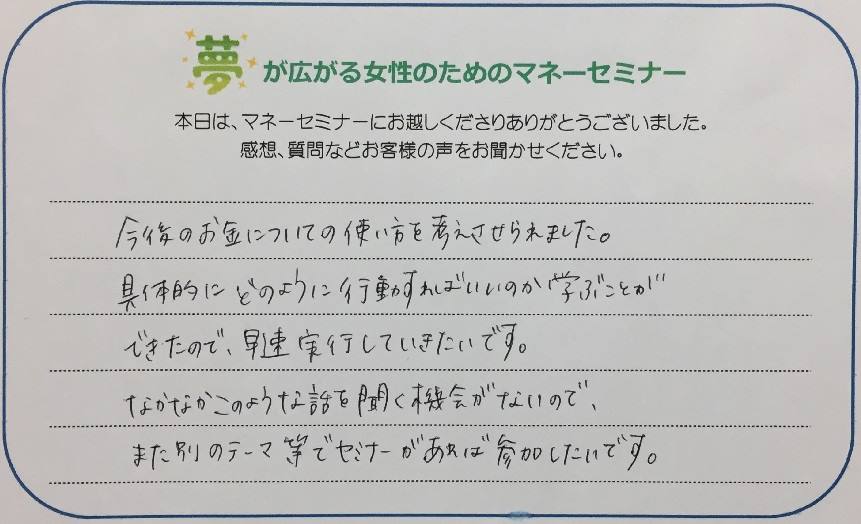 夢が広がる女性のためのマネーセミナー
本日は、マネーセミナーにお越しくださりありがとうございました。
感想、質問などお客様の声をお聞かせください。
今後のお金についての使い方を考えさせられました。
具体的にどのように行動すればいいのか学ぶことが
できたので、早速実行していきたいです。
なかなかこのような話を聞く機会がないので、
また別のテーマ等でセミナーがあれば参加したいです。